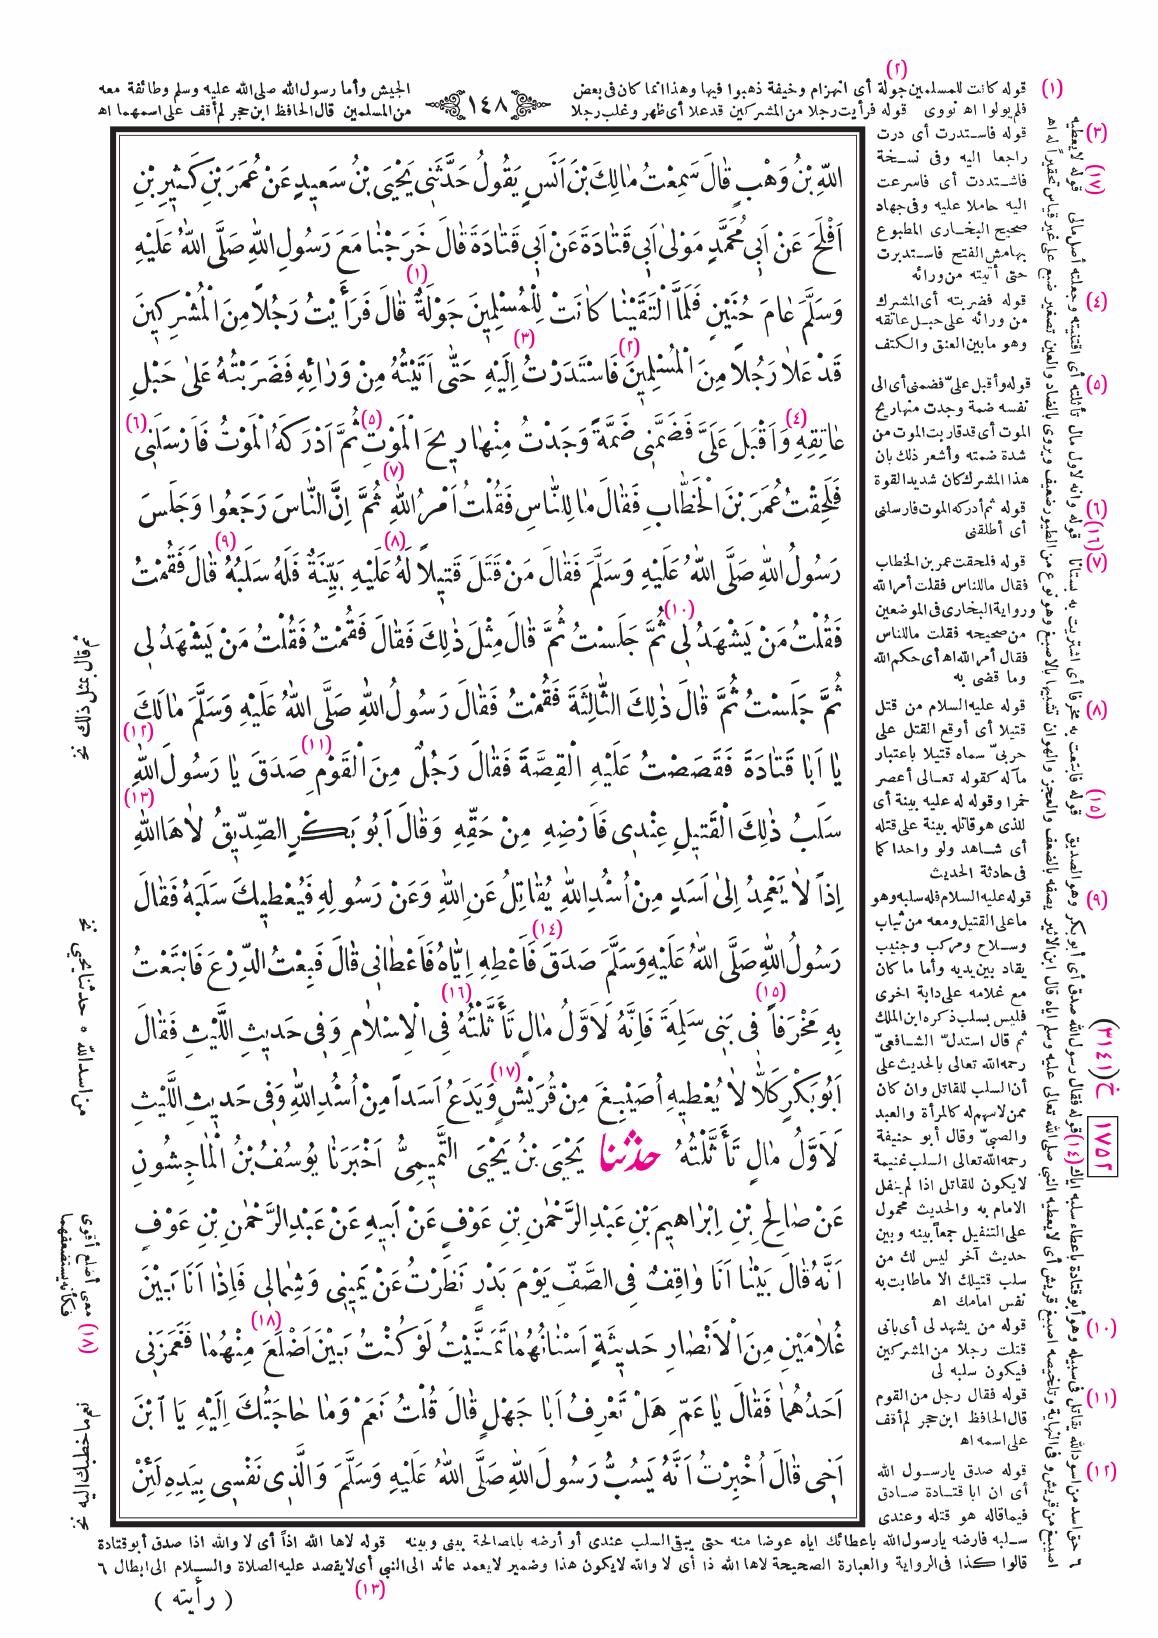 (٢)
(١) قوله كانت للمسلمين جولة أى انهزام وخيفة ذهبوا فيها وهذا انما كان فى بعض
الجيش وأما رسول الله صلى الله عليه وسلم وطائفة معه
فلم يولوا اه نووى قوله فرأيت رجلا من المشركين قد علا أى ظهر وغلب رجلا
من المسلمين قال الحافظ ابن حجر لم أقف على اسمهما اه
١٤٨
اللّٰهِ بْنُ وَهْبٍ قَالَ سَمِعْتُ مَالِكَ بْنَ اَنَسٍ يَقُولُ حَدَّثَنِى يَحْيَى بْنُ سَعِيدٍ عَنْ عُمَرَ بْنِ كَثِيرِ بْنِ
اَفْلَحَ عَنْ اَبِى مُحَمَّدٍ مَوْلىٰ اَبِى قَتَادَةَ عَنْ اَبِى قَتَادَةَ قَالَ خَرَجْنَا مَعَ رَسُولِ اللّٰهِ صَلَّى اللّٰهُ عَلَيْهِ
وَسَلَّمَ عَامَ حُنَيْنٍ فَلَمَّا الْتَقَيْنَا كَانَتْ لِلْمُسْلِمِينَ جَوْلَةٌ (١) قَالَ فَرَأَيْتُ رَجُلاً مِنَ الْمُشْرِكِينَ
قَدْ عَلاَ رَجُلاً مِنَ الْمُسْلِمِينَ (٢) فَاسْتَدَرْتُ (٣) اِلَيْهِ حَتّٰى اَتَيْتُهُ مِنْ وَرَائِهِ فَضَرَبْتُهُ عَلىٰ حَبْلِ
عَاتِقِهِ (٤) وَاَقْبَلَ عَلَىَّ فَضَمَّنِى ضَمَّةً وَجَدْتُ مِنْهَا رِيحَ الْمَوْتِ (٥) ثُمَّ اَدْرَكَهُ الْمَوْتُ فَاَرْسَلَنِى (٦)
فَلَحِقْتُ عُمَرَ بْنَ الْخَطَّابِ فَقَالَ مَا لِلنَّاسِ فَقُلْتُ اَمْرُ اللّٰهِ (٧) ثُمَّ اِنَّ النَّاسَ رَجَعُوا وَجَلَسَ
رَسُولُ اللّٰهِ صَلَّى اللّٰهُ عَلَيْهِ وَسَلَّمَ فَقَالَ مَنْ قَتَلَ قَتِيلاً (٨) لَهُ عَلَيْهِ بَيِّنَةٌ فَلَهُ سَلَبُهُ (٩) قَالَ فَقُمْتُ
فَقُلْتُ مَنْ يَشْهَدُ لِى (١٠) ثُمَّ جَلَسْتُ ثُمَّ قَالَ مِثْلَ ذٰلِكَ فَقَالَ فَقُمْتُ فَقُلْتُ مَنْ يَشْهَدُ لِى
ثُمَّ جَلَسْتُ ثُمَّ قَالَ ذٰلِكَ الثَّالِثَةَ فَقُمْتُ فَقَالَ رَسُولُ اللّٰهِ صَلَّى اللّٰهُ عَلَيْهِ وَسَلَّمَ مَا لَكَ
يَا اَبَا قَتَادَةَ فَقَصَصْتُ عَلَيْهِ الْقِصَّةَ فَقَالَ رَجُلٌ مِنَ الْقَوْمِ (١١) صَدَقَ يَا رَسُولَ اللّٰهِ (١٢)
سَلَبُ ذٰلِكَ الْقَتِيلِ عِنْدِى فَاَرْضِهِ مِنْ حَقِّهِ وَقَالَ اَبُو بَكْرٍ الصِّدِّيقُ لاَهَا اللّٰهِ (١٣)
اِذاً لاَ يَعْمِدُ اِلىٰ اَسَدٍ مِنْ اُسْدِ اللّٰهِ يُقَاتِلُ عَنِ اللّٰهِ وَعَنْ رَسُولِهِ فَيُعْطِيكَ سَلَبَهُ فَقَالَ
رَسُولُ اللّٰهِ صَلَّى اللّٰهُ عَلَيْهِ وَسَلَّمَ صَدَقَ (١٤) فَاَعْطِهِ اِيَّاهُ فَاَعْطَانِى قَالَ فَبِعْتُ الدِّرْعَ فَابْتَعْتُ
بِهِ مَخْرَفاً (١٥) فِى بَنِى سَلِمَةَ فَاِنَّهُ لَاَوَّلُ مَالٍ تَأَثَّلْتُهُ (١٦) فِى الْاِسْلاَمِ وَفِى حَدِيثِ اللَّيْثِ فَقَالَ
اَبُو بَكْرٍ كَلاَّ لاَ يُعْطِيهِ اُصَيْبِغَ مِنْ قُرَيْشٍ (١٧) وَيَدَعُ اَسَداً مِنْ اُسْدِ اللّٰهِ وَفِى حَدِيثِ اللَّيْثِ
لَاَوَّلُ مَالٍ تَأَثَّلْتُهُ حدثنا يَحْيَى بْنُ يَحْيَى التَّمِيمِىُّ اَخْبَرَنَا يُوسُفُ بْنُ الْمَاجِشُونِ
عَنْ صَالِحِ بْنِ اِبْرَاهِيمَ بْنِ عَبْدِ الرَّحْمٰنِ بْنِ عَوْفٍ عَنْ اَبِيهِ عَنْ عَبْدِ الرَّحْمٰنِ بْنِ عَوْفٍ
اَنَّهُ قَالَ بَيْنَا اَنَا وَاقِفٌ فِى الصَّفِّ يَوْمَ بَدْرٍ نَظَرْتُ عَنْ يَمِينِى وَشِمَالِى فَاِذَا اَنَا بَيْنَ
غُلاَمَيْنِ مِنَ الْاَنْصَارِ حَدِيثَةٍ اَسْنَانُهُمَا تَمَنَّيْتُ لَوْ كُنْتُ بَيْنَ اَضْلَعَ (١٨) مِنْهُمَا فَغَمَزَنِى
اَحَدُهُمَا فَقَالَ يَا عَمِّ هَلْ تَعْرِفُ اَبَا جَهْلٍ قَالَ قُلْتُ نَعَمْ وَمَا حَاجَتُكَ اِلَيْهِ يَا ابْنَ
اَخِى قَالَ اُخْبِرْتُ اَنَّهُ يَسُبُّ رَسُولَ اللّٰهِ صَلَّى اللّٰهُ عَلَيْهِ وَسَلَّمَ وَالَّذِى نَفْسِى بِيَدِهِ لَئِنْ
(٣) قوله فاستدرت أى درت
راجعا اليه وفى نسخة
فاشتددت أى فاسرعت
اليه حاملا عليه وفى جهاد
صحيح البخارى المطبوع
بهامش الفتح فاستدبرت
حتى أتيته من ورائه
(٤) قوله فضربته أى المشرك
من ورائه على حبل عاتقه
وهو ما بين العنق والكتف
(٥) قوله وأقبل علىّ فضمنى أى الى
نفسه ضمة وجدت منها ريح
الموت أى قد قاربت الموت من
شدة ضمته وأشعر ذلك بان
هذا المشرك كان شديد القوة
(٦) قوله ثم أدركه الموت فارسلنى
أى أطلقنى
(٧) قوله فلحقت عمر بن الخطاب
فقال ماللناس فقلت أمر الله
ورواية البخارى فى الموضعين
من صحيحه فقلت ماللناس
فقال أمر الله اه أى حكم الله
وما قضى به
(٨) قوله عليه السلام من قتل
قتيلا أى أوقع القتل على
حربىّ سماه قتيلا باعتبار
مآله كقوله تعالى أعصر
خمرا وقوله له عليه بينة أى
للذى هو قاتله بينة على قتله
أى شاهد ولو واحدا كما
فى حادثة الحديث
(٩) قوله عليه السلام فله سلبه وهو
ما على القتيل ومعه من ثياب
وسلاح ومركب وجنيب
يقاد بين يديه وأما ما كان
مع غلامه على دابة اخرى
فليس بسلب ذكره ابن الملك
ثم قال استدلّ الشافعىّ
رحمه الله تعالى بالحديث على
أن السلب للقاتل وان كان
ممن لاسهم له كالمرأة والعبد
والصبىّ وقال أبو حنيفة
رحمه الله تعالى السلب غنيمة
لا يكون للقاتل اذا لم ينفل
الامام به والحديث محمول
على التنفيل جمعاً بينه وبين
حديث آخر ليس لك من
سلب قتيلك الا ماطابت به
نفس امامك اه
(١٠) قوله من يشهد لى أى بانى
قتلت رجلا من المشركين
فيكون سلبه لى
(١١) قوله فقال رجل من القوم
قال الحافظ ابن حجر لم أقف
على اسمه اه
(١٢) قوله صدق يارسول الله
أى ان ابا قتادة صادق
فيما قاله هو قتله وعندى
سلبه فارضه يارسول الله باعطائك اياه عوضا منه حتى يبقى السلب عندى أو أرضه بالمصالحة بينى وبينه قوله لاها الله اذاً أى لا والله اذا صدق أبو قتادة
قالوا كذا فى الرواية والعبارة الصحيحة لاها الله ذا أى لا والله لا يكون هذا وضمير لا يعمد عائد الى النبى أى لا يقصد عليه الصلاة والسلام الى ابطال ٦
(١٣)
( رأيته )
٦ حق اسد من اسود الله يقاتل فى سبيله وهو أبو قتادة باعطاء سلبه اياك (١٤) قوله فقال رسول الله صدق أى أبو بكر وهو الصديق (١٥) قوله فابتعت به مخرفا أى اشتريت به بستانا (١٦) قوله وانه لاول مال تأثلته أى اقتنيته وجعلته أصل مالى (١٧) قوله لا يعطيه
اصيبغ من قريش أى لا يعطيه النبى صلى الله تعالى عليه وسلم اياه قال ابن الاثير يصفه بالضعف والعجز والهوان تشبيها بالاصبغ وهو نوع من الطيور ضعيف ويروى بالضاد والعين تصغير ضبع على غير قياس تحقيراً له اه
خ (٣١٤١)
١٧٥٢
قال بمثل ذلك نخ
من اسد الله ٥ حدثنا يحيى نخ
(١٨) معنى أضلع أقوى
فكأنه يستضعفهما